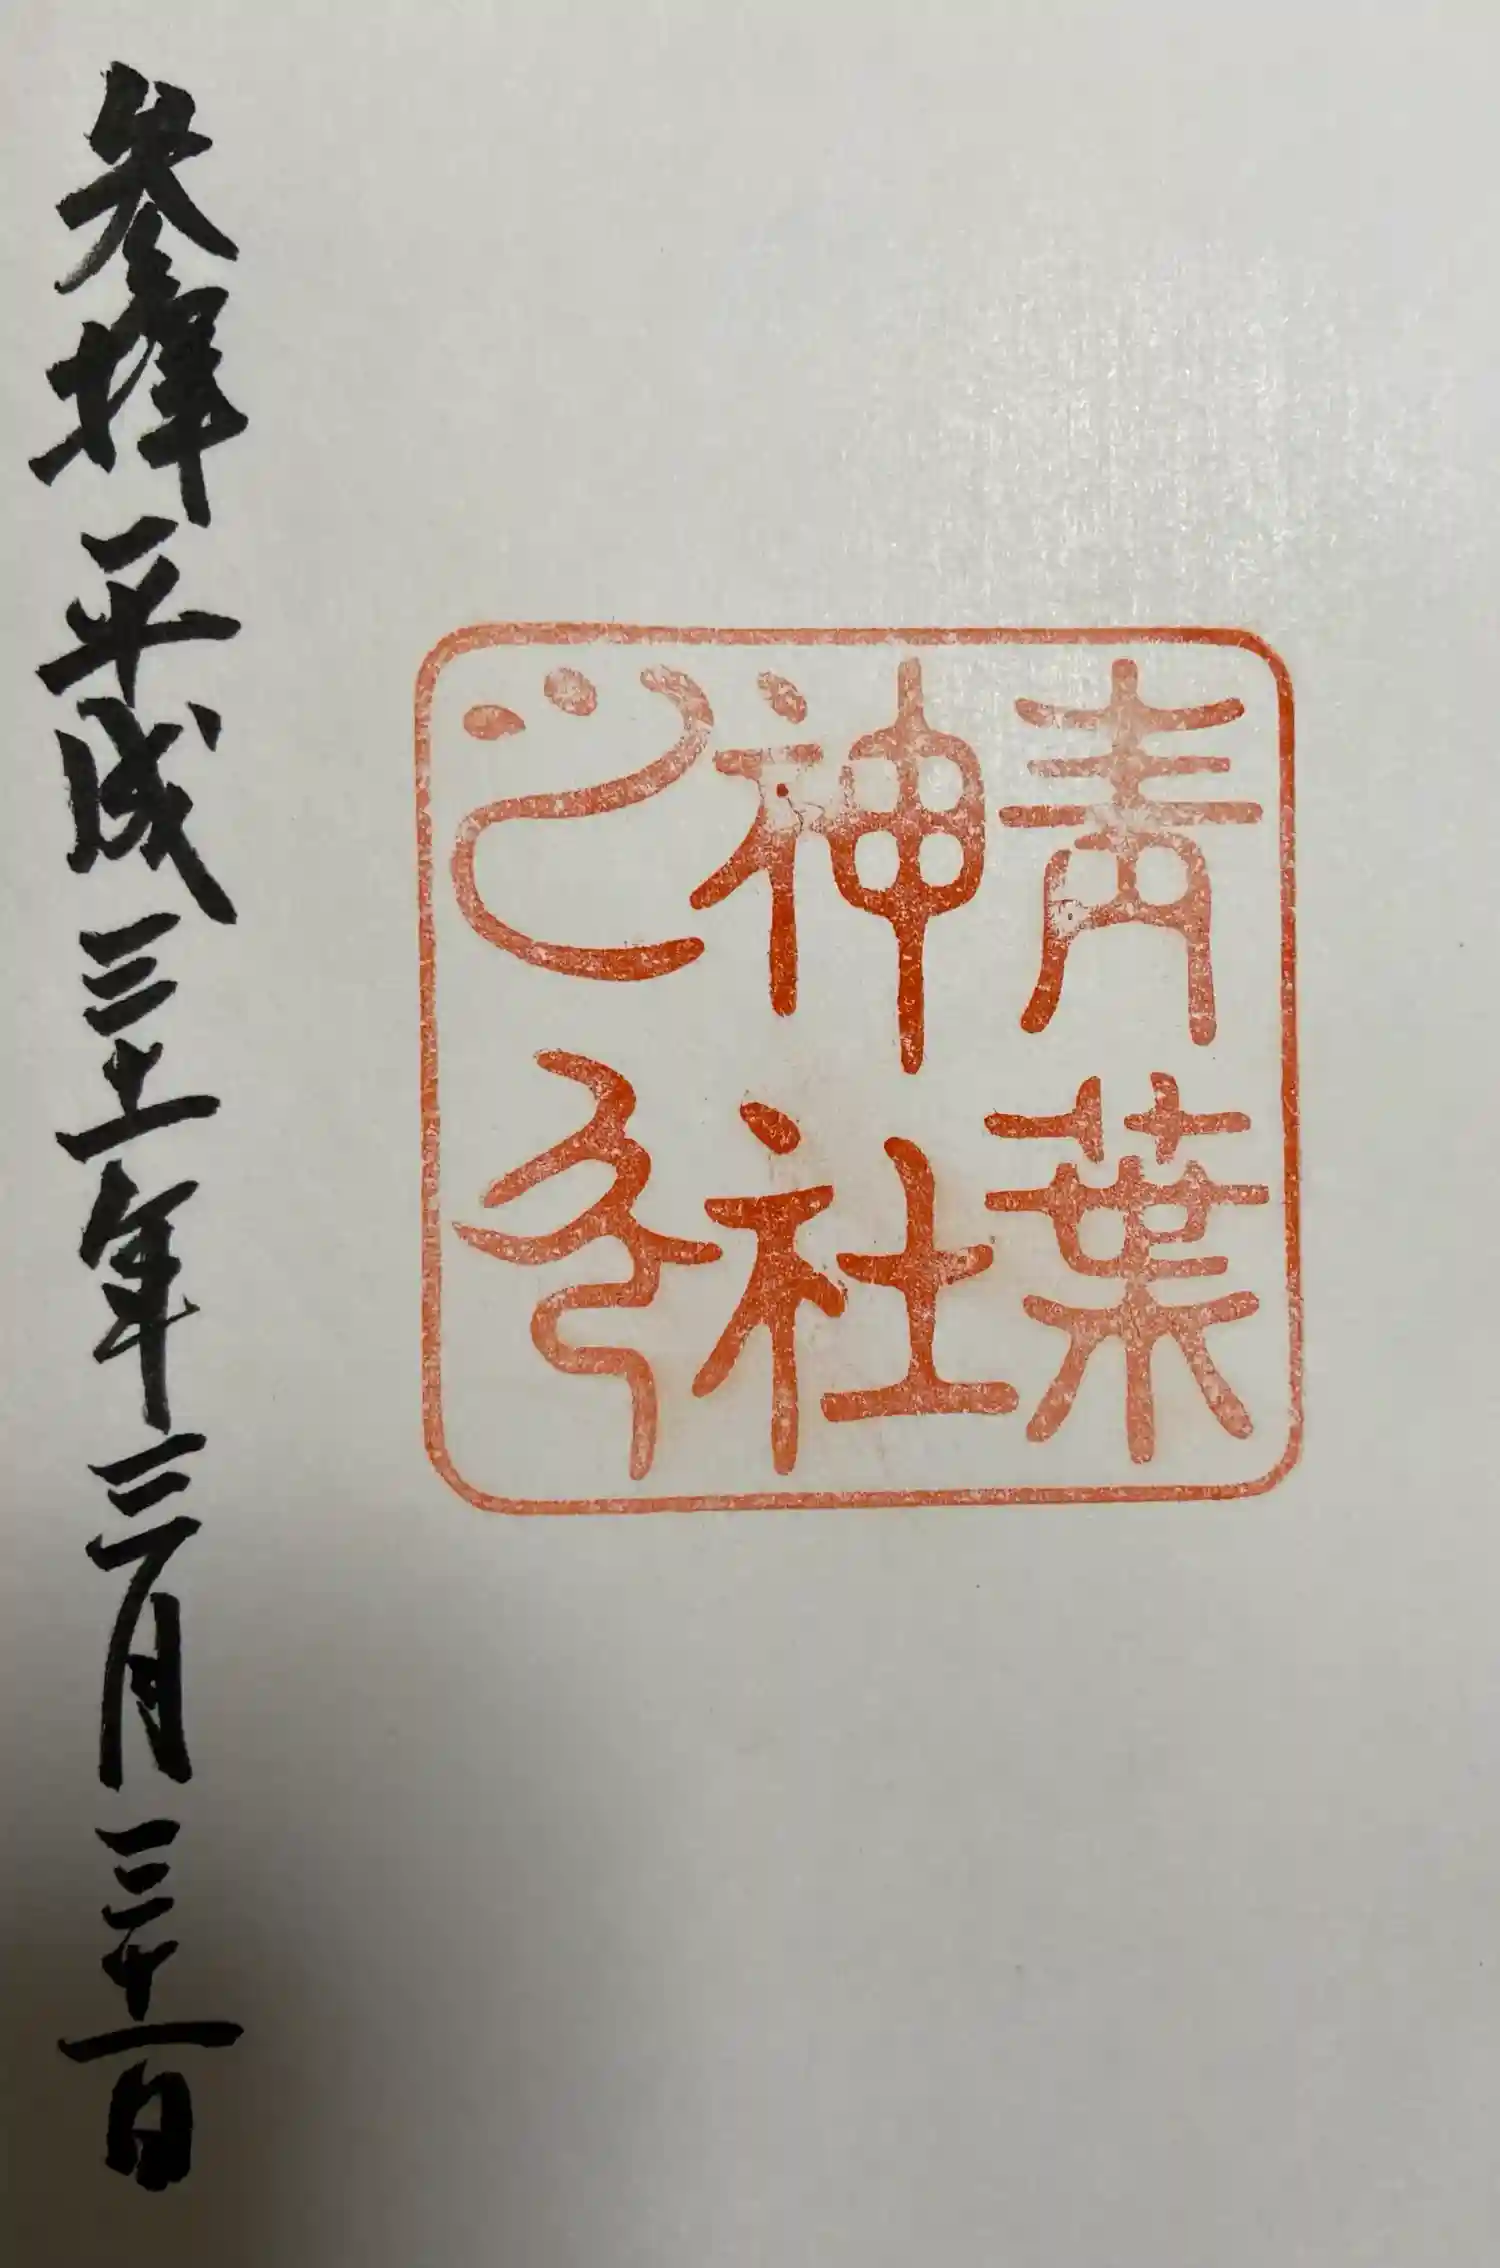 青葉
神社
之印
参拝 平成三十一年三月三十一日